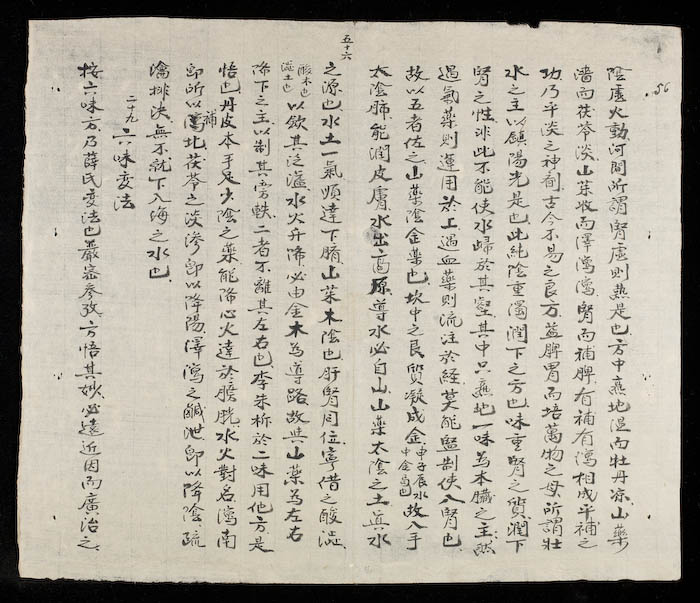 56
陰虛火動河間所謂腎虛則熱是也方中熟地溫而牡丹凉山藥
濇而茯苓淡山茱收而澤瀉瀉腎而補脾有補有瀉相成平補之
功乃平淡之神劑古今不易之良方益脾胃而培萬物之母所謂壯
水之主以鎮陽光是也此純陰重濁潤下之方也味重腎之質潤下
腎之性非此不能使水歸於其壑其中只熟地一味為本臟之主然
遇氣藥則運用於上遇血藥則流注於經莫能監制使入腎也
故以五者佐之山藥陰金藥也坎中之艮質凝成金申子辰水中金也故入手
太陰肺能潤皮膚水出高原導水必自山山藥太陰之土真水
五十六
之源也水土一氣順達下膲山茱木陰也肝腎同位寧借之酸澁
酸木也澁土也以斂其泛溢水火升降必由金木為導路故與山藥為左右
降下之主以制其旁軼二者不離其左右也李朱析於二味用他方是
悟也丹皮本手足少陰之藥能降心火達於膀胱水火對名瀉南
即所以補瀉北茯苓之淡滲即以降陽澤瀉之鹹泄即以降陰疏
瀹排決無不就下入海之水也
二十九 六味変法
按六味方乃薛氏変法也嚴審參攷方悟其妙必遠近因而廣治之